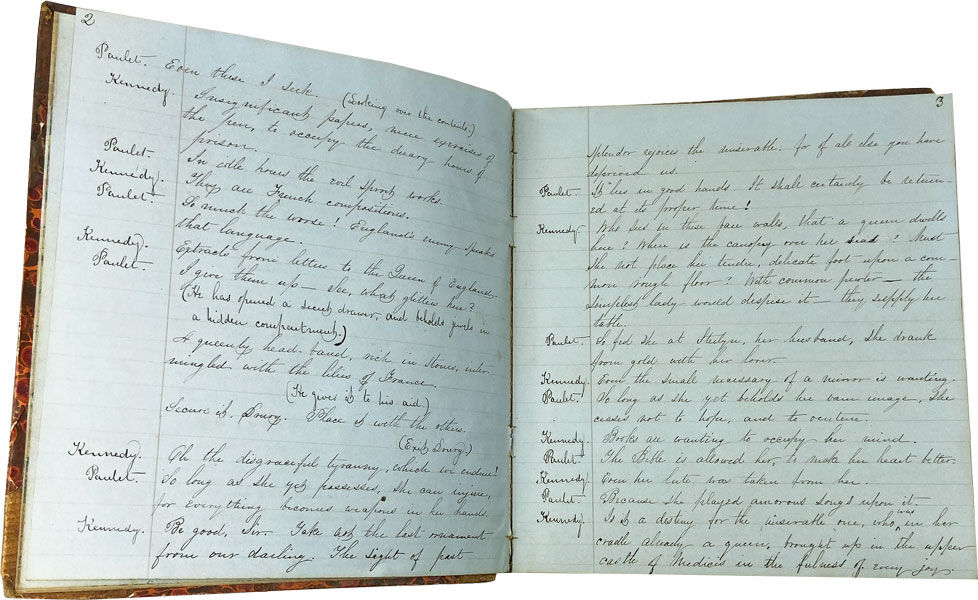 2
Paulet. Even these I seek. (Looking over the contents.)
Kennedy. Insignificant papers, mere exercises of
the pen, to occupy the dreary hours of
prison.
Paulet. In idle hours the evil spirit works.
Kennedy. They are French compositions.
Paulet. So much the worse! England's enemy speaks
that language.
Kennedy. Extracts from letters to the Queen of England.
Paulet. I give them up — See, what glitters here?
(He has opened a secret drawer, and beholds jewels in
a hidden compartment.)
A queenly head-band, rich in stones, inter
mingled with the lilies of France.
(He gives it to his aid.)
Secure it, Drury. Place it with the others.
(Exit Drury.)
Kennedy. Oh the disgraceful tyranny, which we endure!
Paulet. So long as she yet possesses, she can injure,
for everything becomes weapons in her hands.
Kennedy. Be good, Sir. Take not the last ornament
from our darling. The sight of past
3
splendor rejoices the miserable. for of all else you have
deprived us.
Paulet. It lies in good hands. It shall certainly be return-
ed at its proper time!
Kennedy. Who sees in these bare walls, that a queen dwells
here? Where is the canopy over her seat? Must
she not place her tender, delicate foot upon a com-
mon rough floor? With common pewter — the
simplest lady would despise it — they supply her
table.
Paulet. So fed she at Sterlyn, her husband, she drank
from gold with her lover.
Kennedy. Even the small necessary of a mirror is wanting.
Paulet. So long as she yet beholds her vain image, she
ceases not to hope, and to venture.
Kennedy. Books are wanting to occupy her mind.
Paulet. The Bible is allowed her, to make her heart better.
Kennedy. Even her lute was taken from her.
Paulet. Because she played amorous songs upon it.
Kennedy. Is it a destiny for the miserable one, who was in her
cradle already a queen, brought up in the upper
castle of Medicis in the fulness of every joy.